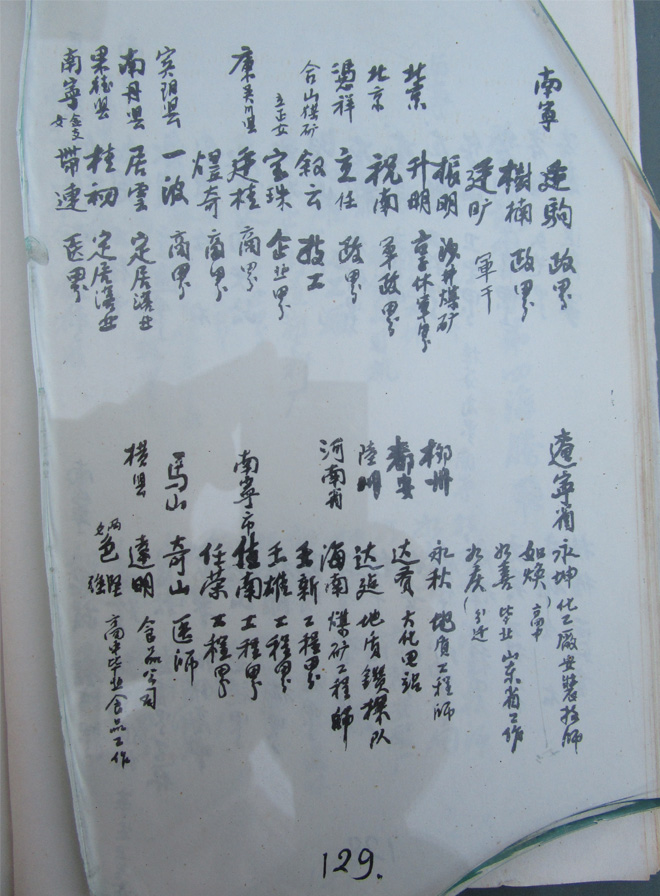 南寧 廷駒 政界
樹楠 政界
廷旷 軍干
振明 煤矿
北京 升明 京手休軍界
北京 祝南 军政界
憑祥 主任 政界
合山煤矿 叙云 技工
宝珠 企业界
康美县 廷桂 商界
煜奇 商界
宾阳县 一波 商界
南丹县 居雲 定居渓业
果徳县 桂初 定居渓业
南寧 女 帶連 医界
遼寧省 永坤 化工廠安装技師
如煥 高中
如善 毕业 山东省工作
如庆
柳州 永秋 地质工程师
都安 达贡 大化电站
陸川 达延 地质鑽探队
河南省 海南 煤矿工程師
壬新 工程界
壬雄 工程界
南寧市 佳南 工程界
任荣 工程界
馬山 奇山 医师
横县 達明 食品公司
高中毕业食品工作
129.